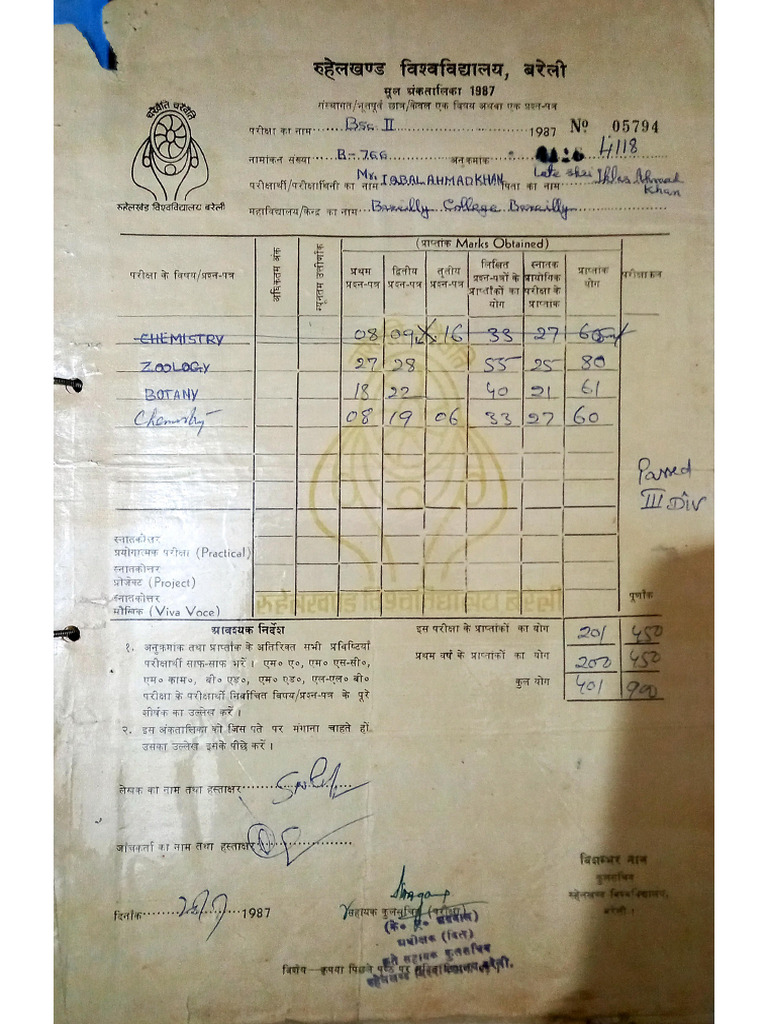 रुहेलखण्ड विश्वविद्यालय, बरेली
मूल अंकतालिका 1987
संस्थागत/भूतपूर्व छात्र/केवल एक विषय अथवा एक प्रश्न-पत्र
चरैवेति चरैवेति
रुहेलखंड विश्वविद्यालय बरेली
परीक्षा का नाम BSc II 1987 No 05794
नामांकन संख्या B-766 अनुक्रमांक 4118
परीक्षार्थी/परीक्षार्थिनी का नाम Mr. IQBAL AHMAD KHAN पिता का नाम Late Shri Ikhlas Ahmad Khan
महाविद्यालय/केन्द्र का नाम Bareilly College Bareilly
(प्राप्तांक Marks Obtained)
परीक्षा के विषय/प्रश्न-पत्र अधिकतम अंक न्यूनतम उत्तीर्णांक प्रथम प्रश्न-पत्र द्वितीय प्रश्न-पत्र तृतीय प्रश्न-पत्र लिखित प्रश्न-पत्रों के प्राप्तांकों का योग स्नातक प्रायोगिक परीक्षा के प्राप्तांक प्राप्तांक योग परीक्षाफल
CHEMISTRY 08 09 16 33 27
ZOOLOGY 27 28 55 25 80
BOTANY 18 22 40 21 61
Chemistry 08 19 06 33 27 60
Passed
III Div
स्नातकोत्तर
प्रयोगात्मक परीक्षा (Practical)
स्नातकोत्तर
प्रोजेक्ट (Project)
स्नातकोत्तर
मौखिक (Viva Voce)
पूर्णांक
आवश्यक निर्देश
इस परीक्षा के प्राप्तांकों का योग 201 450
प्रथम वर्ष के प्राप्तांकों का योग 200 450
कुल योग 401 900
१. अनुक्रमांक तथा प्राप्तांक के अतिरिक्त सभी प्रविष्टियाँ
परीक्षार्थी साफ-साफ भरें । एम० ए०, एम० एस-सी०,
एम० काम०, बी० एड०, एम० एड०, एल-एल० बी०
परीक्षा के परीक्षार्थी निर्वाचित विषय/प्रश्न-पत्र के पूरे
शीर्षक का उल्लेख करें ।
२. इस अंकतालिका को जिस पते पर मंगाना चाहते हों
उसका उल्लेख इसके पीछे करें ।
लेखक का नाम तथा हस्ताक्षर
जांचकर्ता का नाम तथा हस्ताक्षर
विशम्भर नाथ
कुलसचिव
रुहेलखण्ड विश्वविद्यालय,
बरेली ।
दिनांक 1987
सहायक कुलसचिव (परीक्षा)
(के० ए० अग्रवाल)
अधीक्षक (वित्त)
कृते सहायक कुलसचिव
रुहेलखण्ड विश्वविद्यालय, बरेली.
विशेष—कृपया पिछले पृष्ठ पर